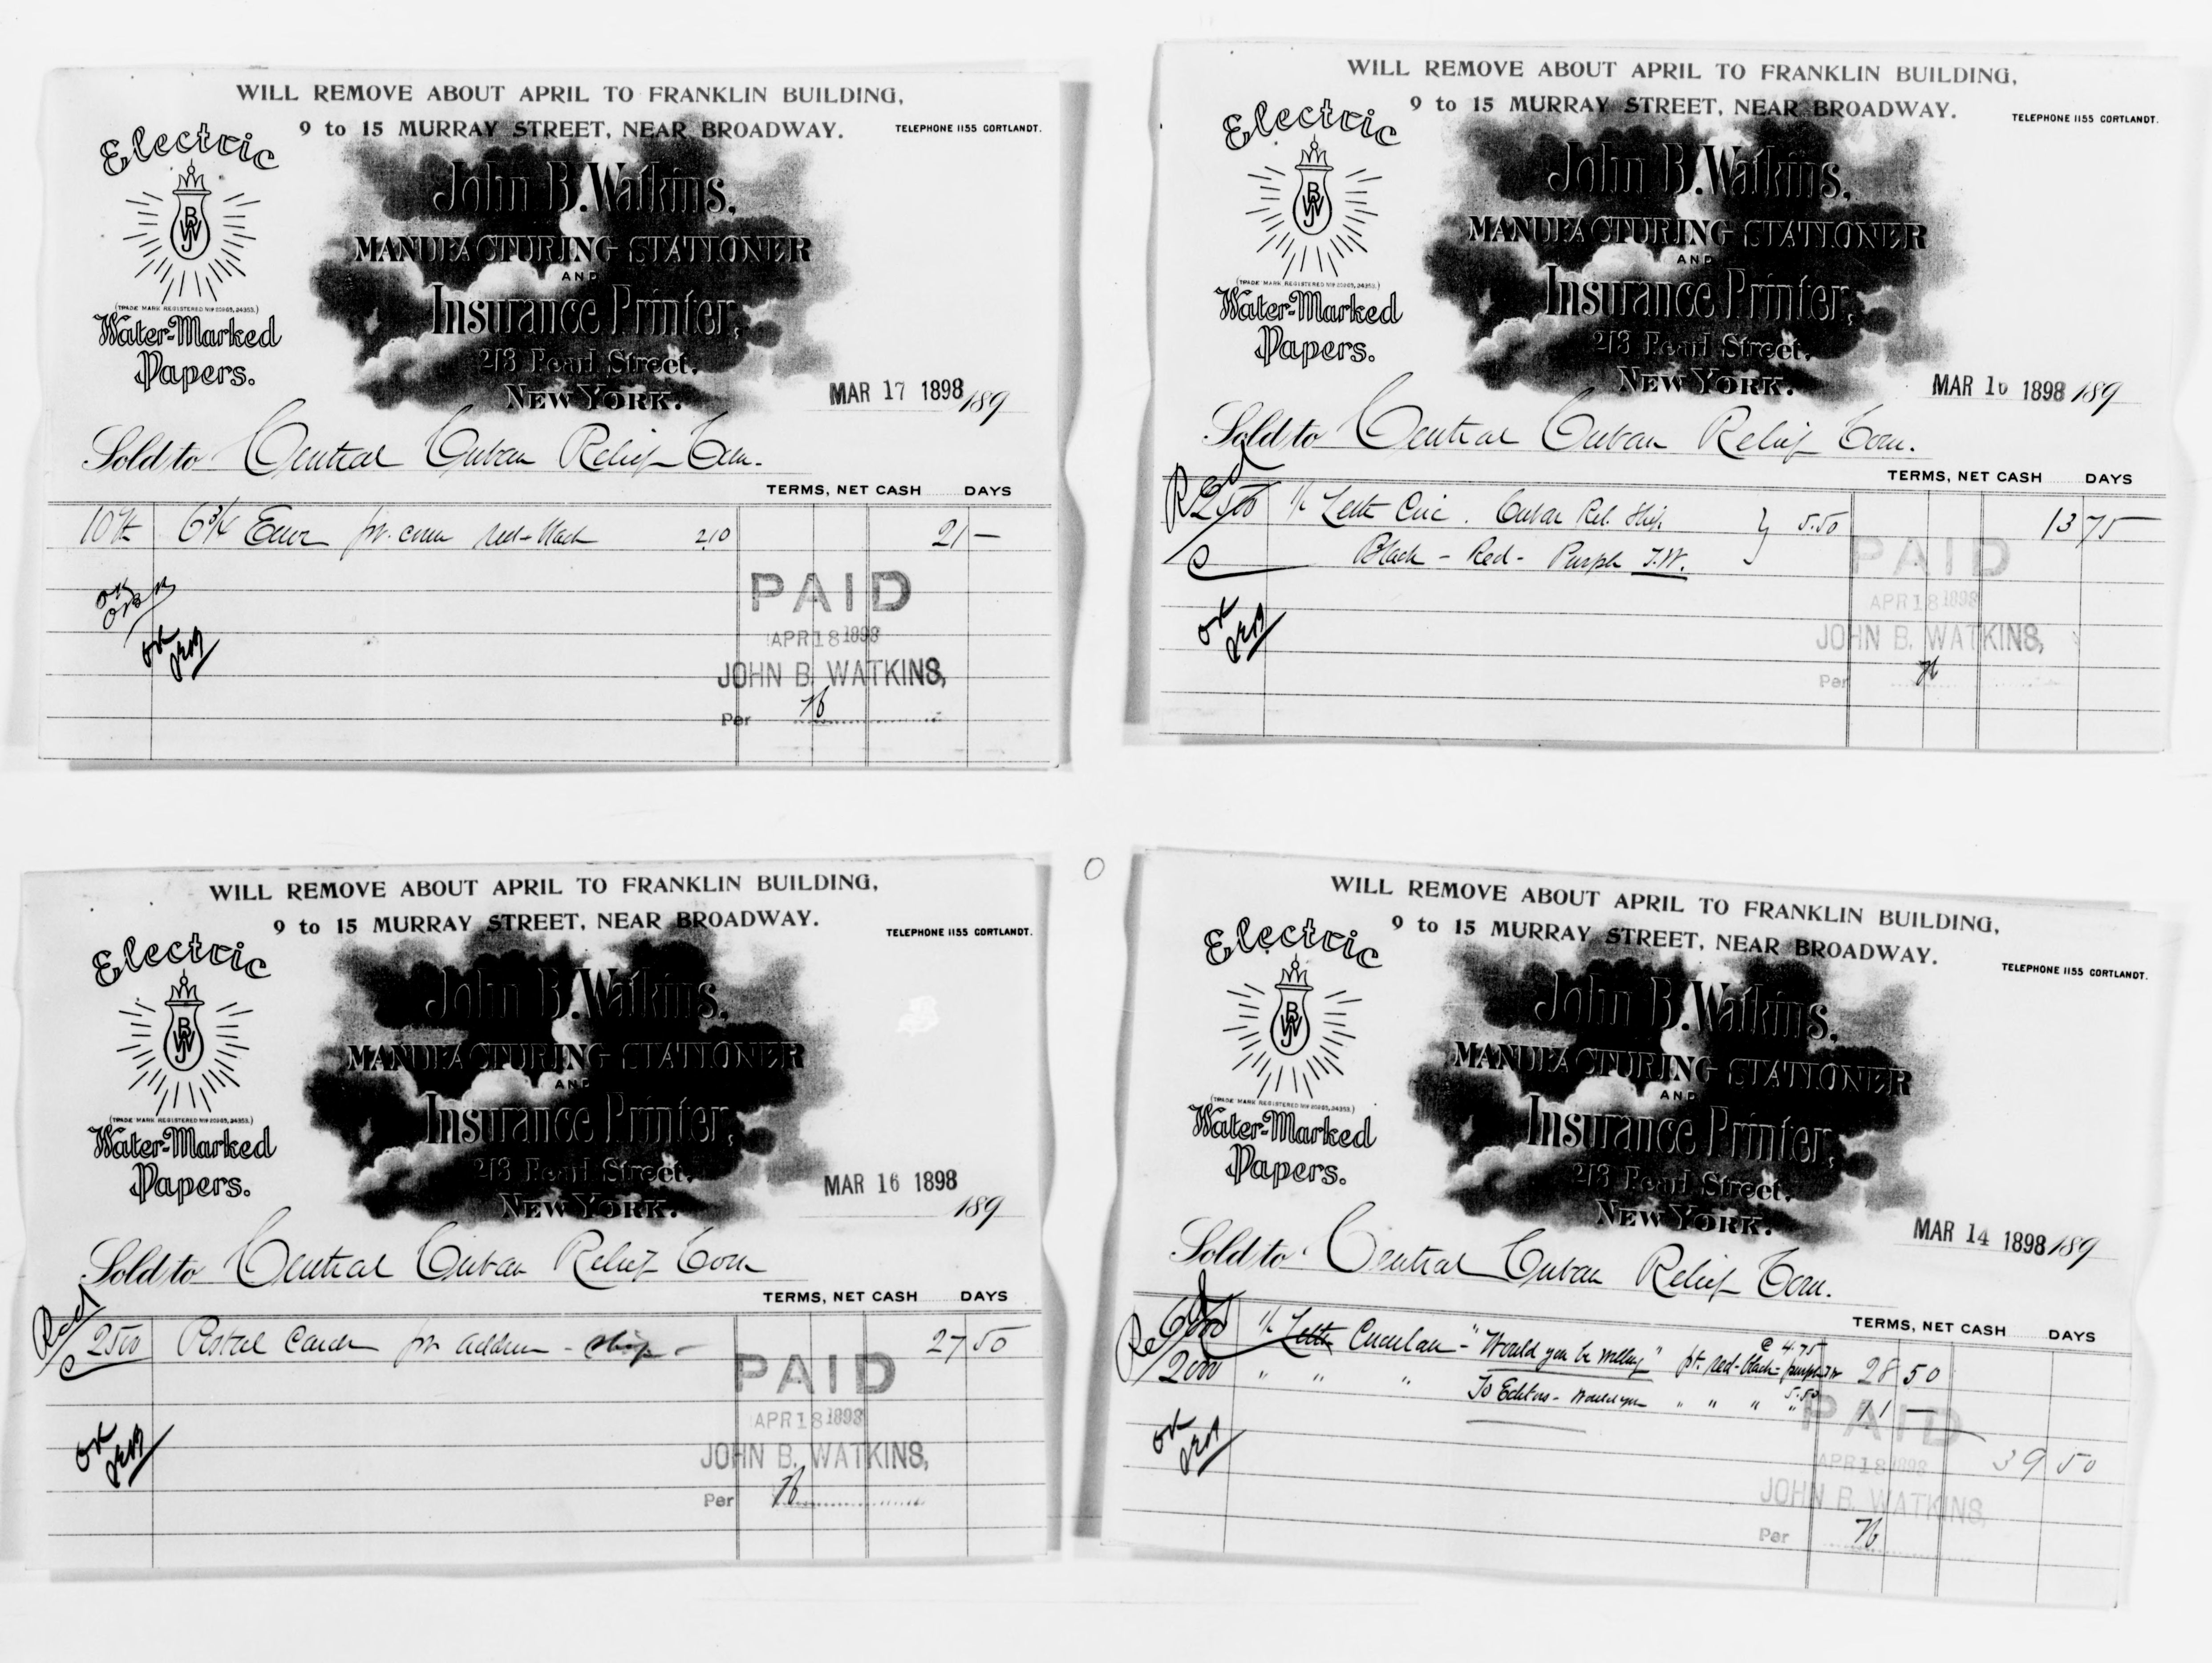 WILL REMOVE ABOUT APRIL TO FRANKLIN BUILDING,
9 to 15 MURRAY STREET, NEAR BROADWAY.
TELEPHONE 1155 CORTLANDT.
Electric
JBW
Water-Marked
Papers.
John B. Watkins,
MANUFACTURING STATIONER
AND
Insurance Printer,
213 Pearl Street,
NEW YORK.
MAR 17 1898 189
Sold to Central Cuban Relief Com.
TERMS, NET CASH DAYS
6 3/4 Env red-black 210 21 —
PAID
APR 18 1898
JOHN B. WATKINS,
Per
WILL REMOVE ABOUT APRIL TO FRANKLIN BUILDING,
9 to 15 MURRAY STREET, NEAR BROADWAY.
TELEPHONE 1155 CORTLANDT.
Electric
JBW
Water-Marked
Papers.
John B. Watkins,
MANUFACTURING STATIONER
AND
Insurance Printer,
213 Pearl Street,
NEW YORK.
MAR 16 1898 189
Sold to Central Cuban Relief Com.
TERMS, NET CASH DAYS
Recd
2500 Lett Circ. Cuban Rel. 5.50 13 75
Black - Red - Purple
OK
PAID
APR 18 1898
JOHN B. WATKINS,
Per
WILL REMOVE ABOUT APRIL TO FRANKLIN BUILDING,
9 to 15 MURRAY STREET, NEAR BROADWAY.
TELEPHONE 1155 CORTLANDT.
Electric
JBW
Water-Marked
Papers.
John B. Watkins,
MANUFACTURING STATIONER
AND
Insurance Printer,
213 Pearl Street,
NEW YORK.
MAR 16 1898
189
Sold to Central Cuban Relief Com
TERMS, NET CASH DAYS
Recd
2500 Postal Cards 27 50
OK
PAID
APR 18 1898
JOHN B. WATKINS,
Per
WILL REMOVE ABOUT APRIL TO FRANKLIN BUILDING,
9 to 15 MURRAY STREET, NEAR BROADWAY.
TELEPHONE 1155 CORTLANDT.
Electric
JBW
Water-Marked
Papers.
John B. Watkins,
MANUFACTURING STATIONER
AND
Insurance Printer,
213 Pearl Street,
NEW YORK.
MAR 14 1898 189
Sold to Central Cuban Relief Com.
TERMS, NET CASH DAYS
6000 Circular - "Would you be willing" pt. red-black-purple @ 4.75 28 50
2000 " " " To Editors - Would you " " " " 5.50 11 —
39 50
OK
PAID
APR 18 1898
JOHN B. WATKINS,
Per